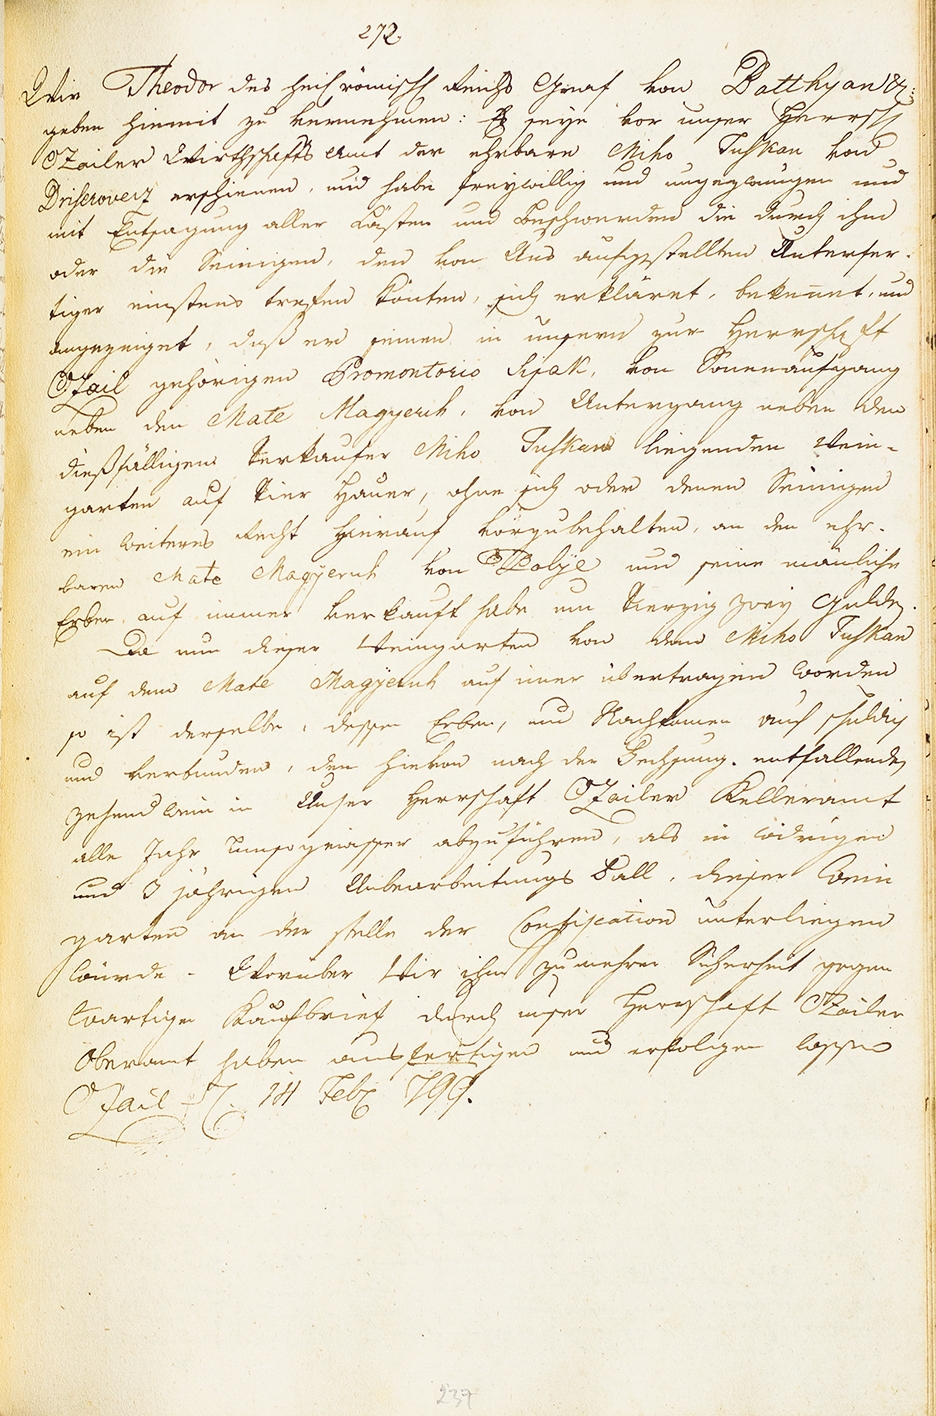 272.
Wir Theodor des heil römisch Reichs Graf von Batthyan &:
geben hiemit zu vernehmen: Es seÿe vor unser Herrsch
Ozailer Wirthschafts Amt der ehrbare Miho Tuskan von
erschienen, und habe freywillig und ungezwungen und
mit Entsagung aller Lästen und Beschwerden die durch ihm
oder die Seinigen, den von Uns aufgestellten Unterfer-
tiger einstens treffen könten, sich erkläret, bekennet, und
angezeiget, daß er seinen in unsern zur Herrschaft
Ozail gehörigen Promontorio Sipak, von Sonenaufgang
neben den Mate Magyeruh, von Untergang neben den
dießfälligen Verkaufer Miho Tuskan liegenden Wein-
garten auf Vier Hauer, ohne sich oder denen Seinigen
ein weiteres Recht hierauf vorzubehalten, an den ehr-
baren Mate Magyeruh von und seine mänliche
Erben auf immer verkauft habe um Vierzig zwey Gulden.
Da nun dieser Weingarten von dem Miho Tuskan
auf dem Mate Magyeruh auf imer übertragen worden
so ist derselbe, dessen Erben, und Nachkomen auch schuldig
und verbunden, den hievon nach der Fechsung entfallenden
zehend Wein in Unser Herrschaft Ozailer Kelleramt
alle Jahr umsogewisser abzuführen, als in widrigen
und 3 jährigen Unbearbeitungs Fall, dieser Wein
garten an der stelle der Confiscation unterliegen
würde. Worüber Wir ihm zu mehrer Sicherheit gegen
wärtigen Kaufbrief durch unser Herrschaft Ozailer
Oberamt haben ausfertigen und erfolgen lassen
Ozail 14 Feb 799.
237